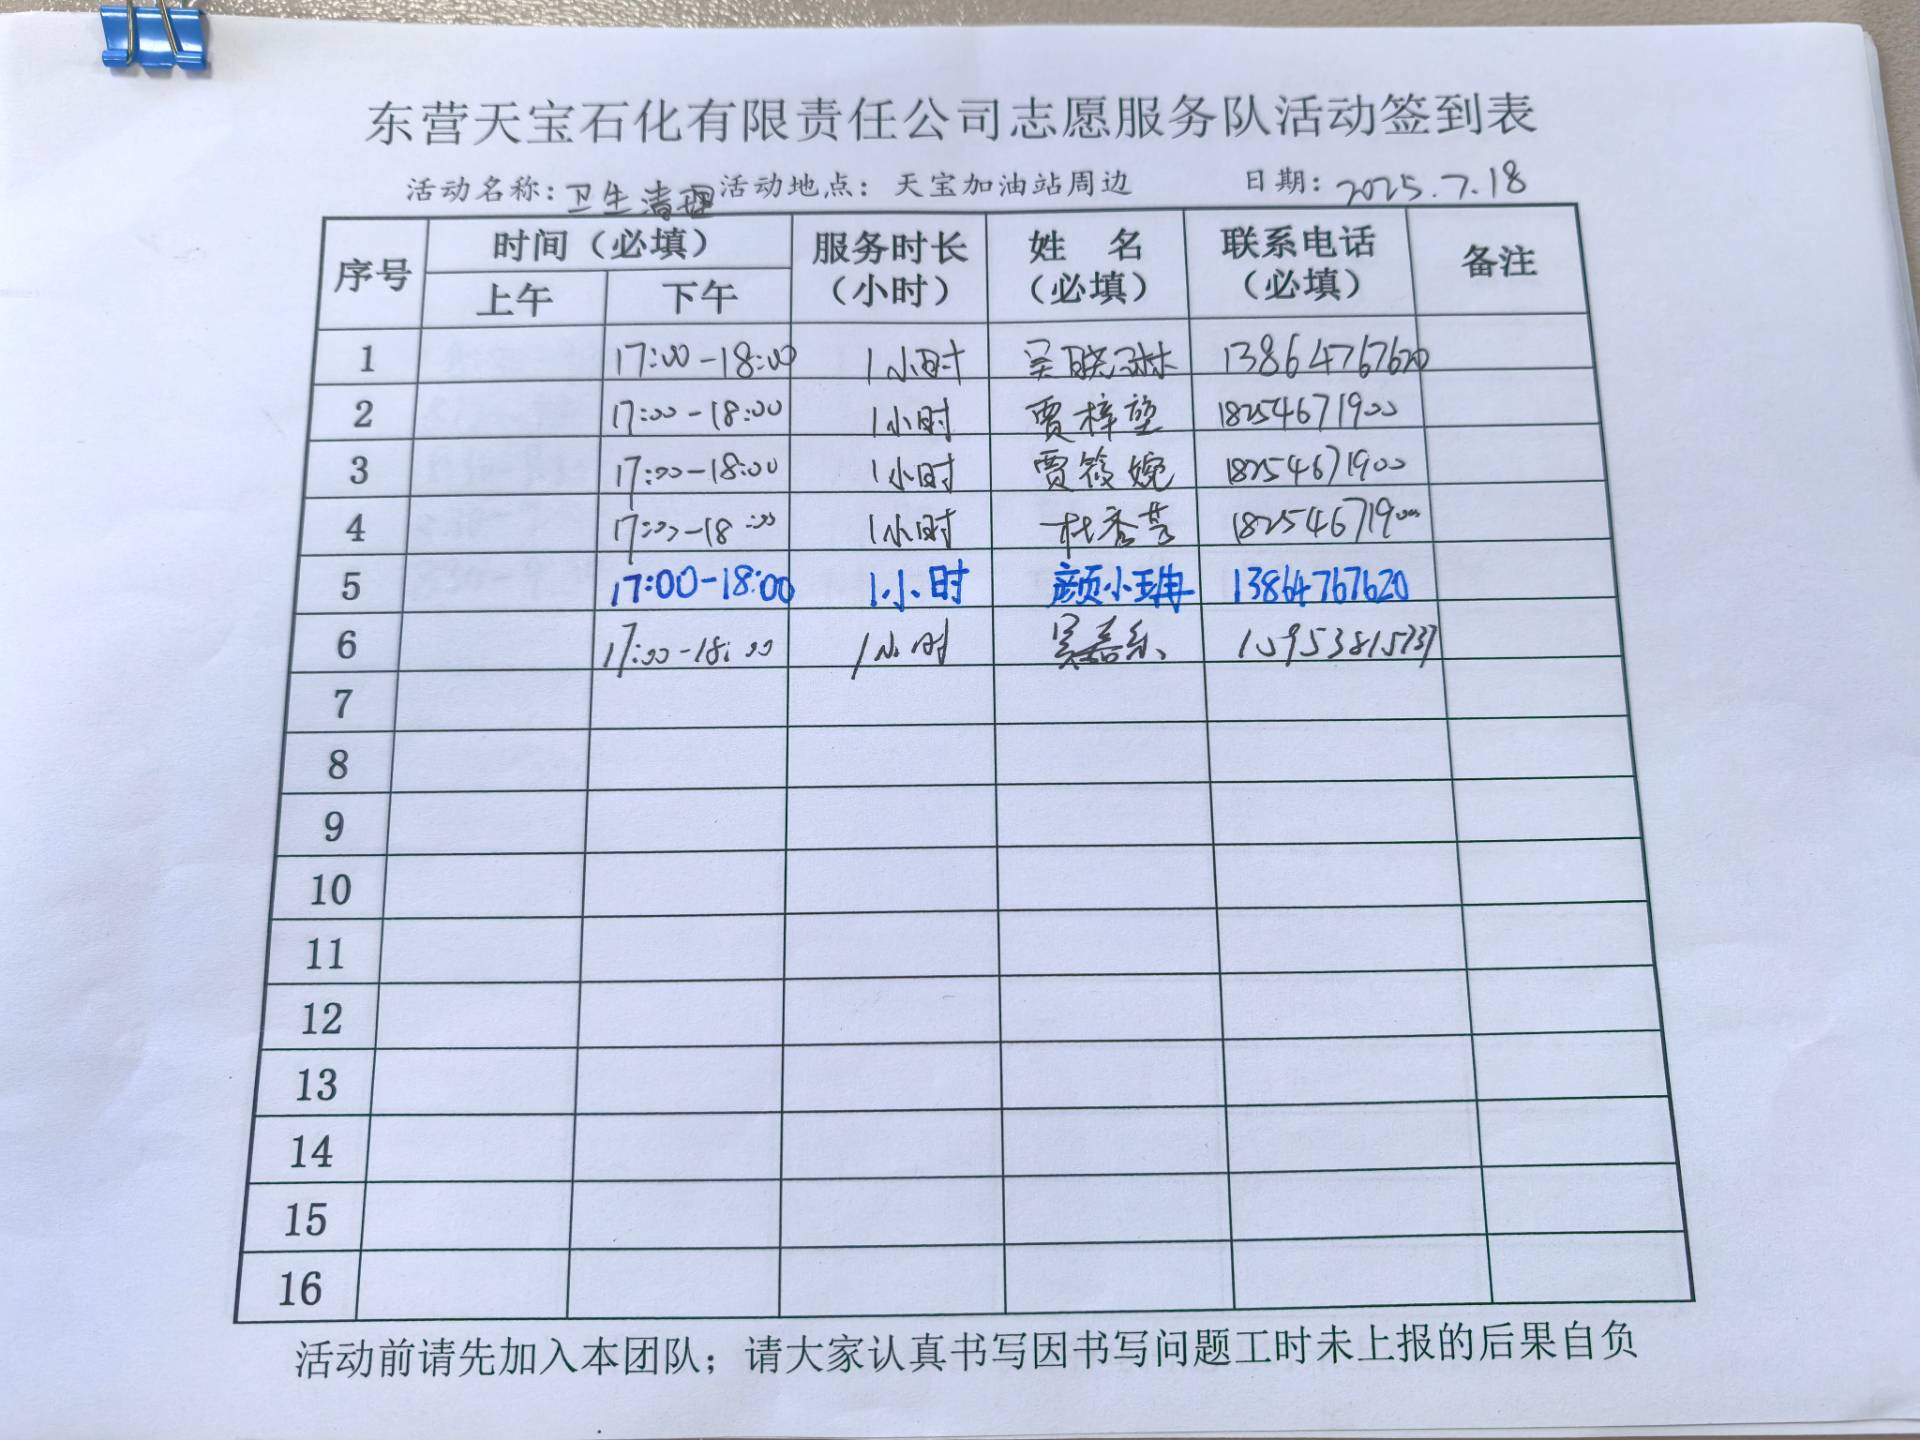 东营天宝石化有限责任公司志愿服务队活动签到表
活动名称：卫生清理 活动地点：天宝加油站周边 日期：2025.7.18
序号 时间（必填） 服务时长（小时） 姓 名（必填） 联系电话（必填） 备注
上午 下午
1 17:00-18:00 1小时 吴晓琳 13864767620
2 17:00-18:00 1小时 贾梓堃 18254671900
3 17:00-18:00 1小时 贾筱婉 18254671900
4 17:00-18:00 1小时 杜秀芳 18254671900
5 17:00-18:00 1小时 颜小珃 13864767620
6 17:00-18:00 1小时 吴嘉乐 15953815737
7
8
9
10
11
12
13
14
15
16
活动前请先加入本团队；请大家认真书写因书写问题工时未上报的后果自负